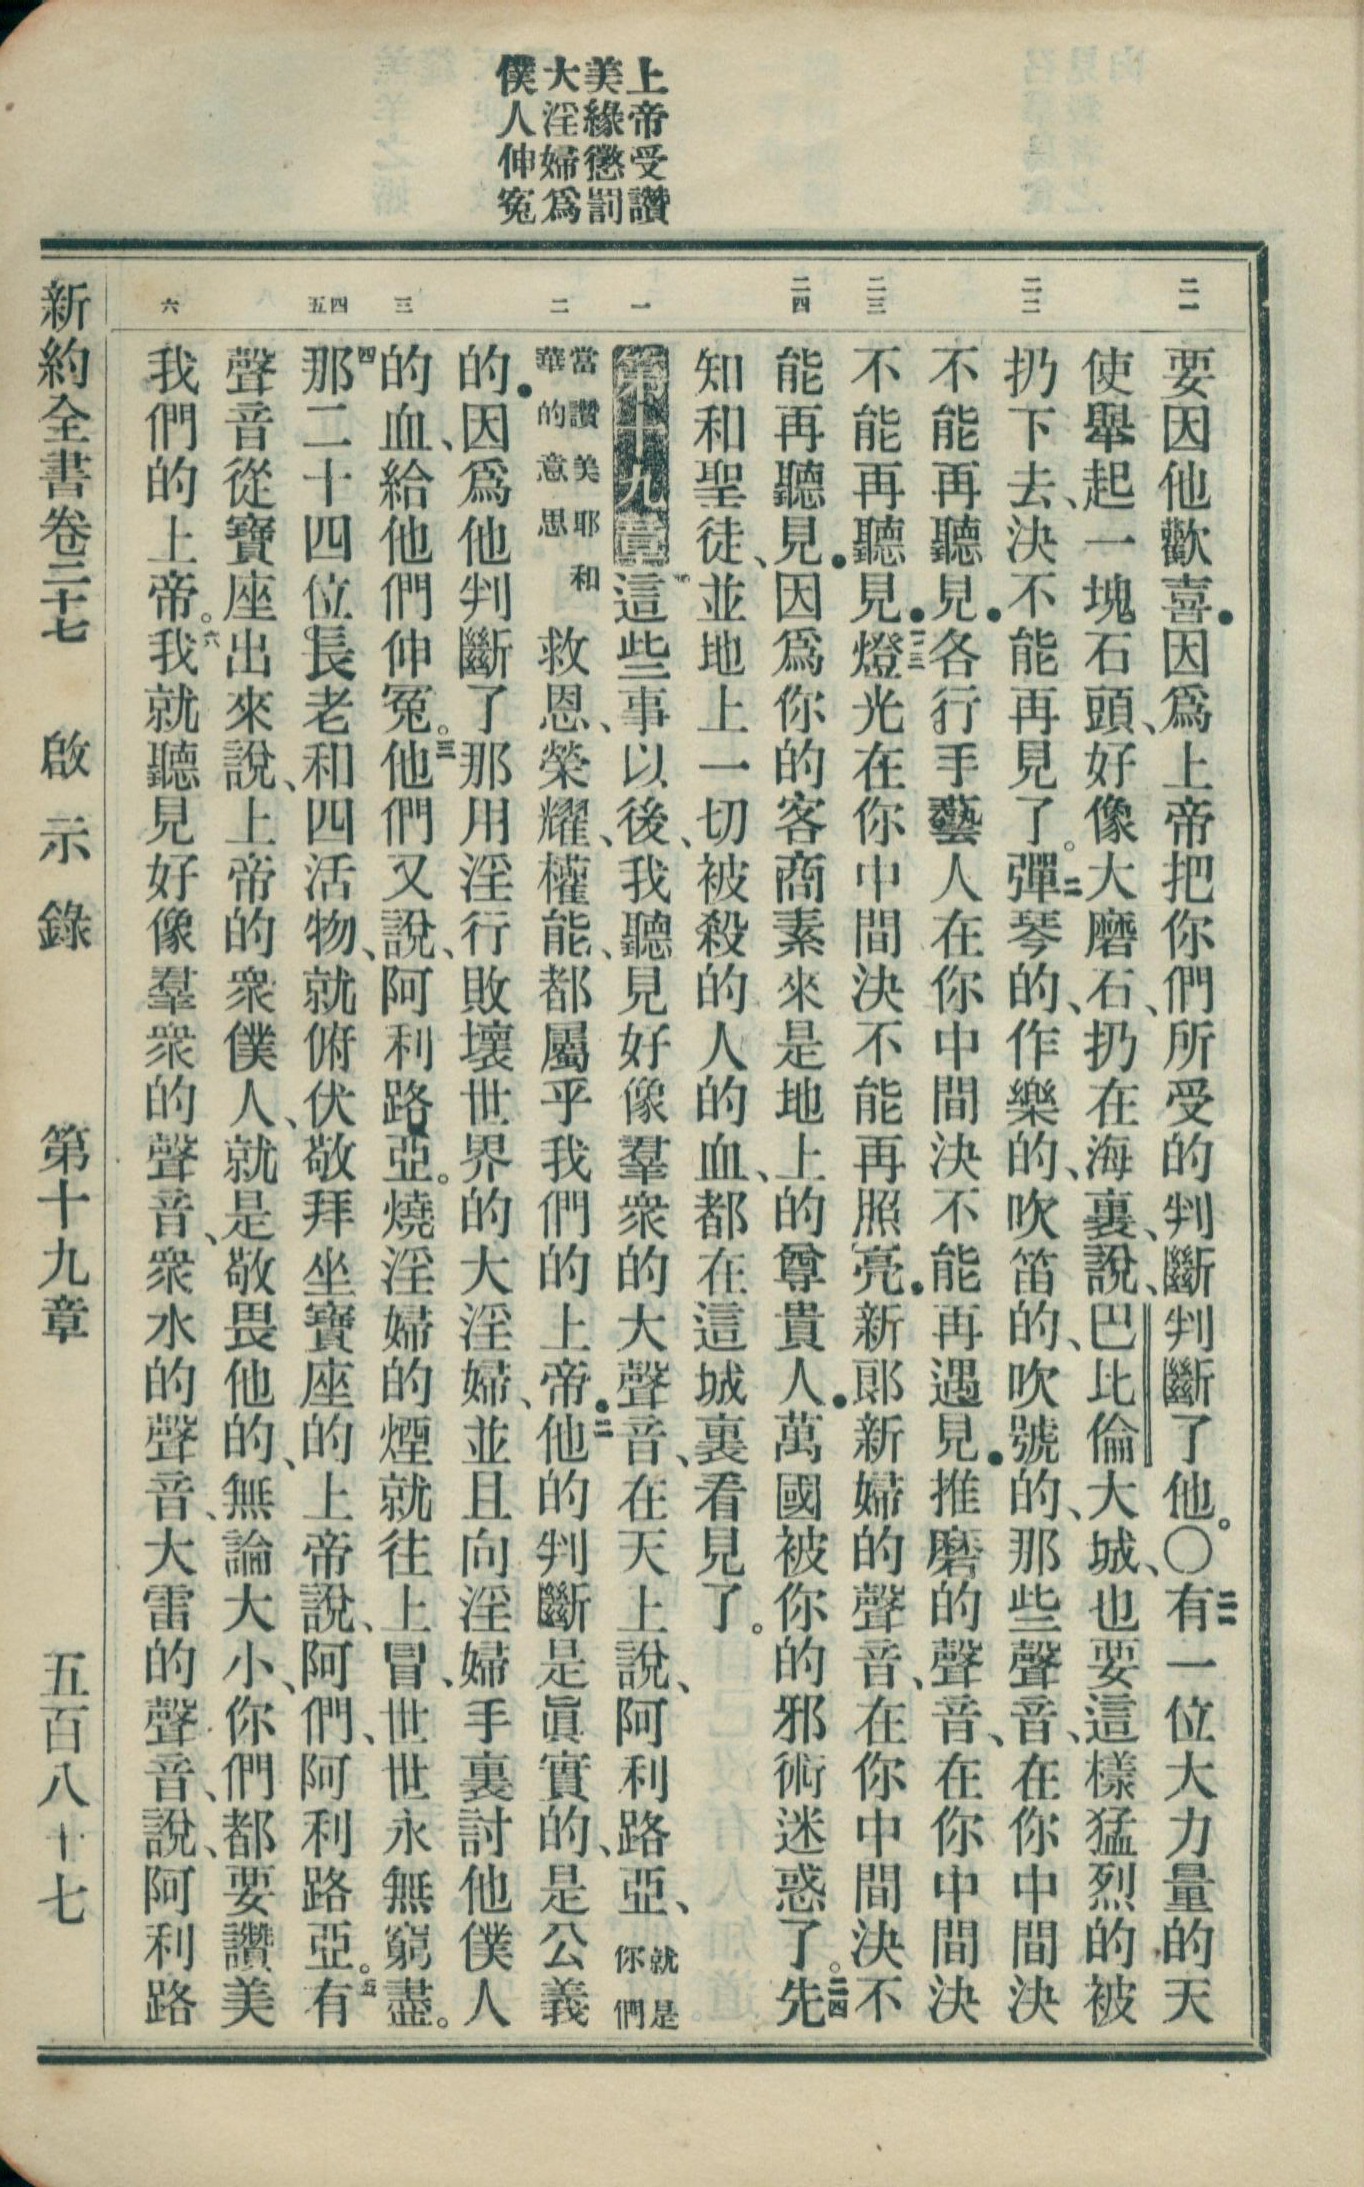 上帝受讚
美緣懲罰
大淫婦爲
僕人伸冤
二一
二二
二三
二四
一
二
三
四
五
六
要因他歡喜.因爲上帝把你們所受的判斷判斷了他。〇二一有一位大力量的天
使舉起一塊石頭、好像大磨石、扔在海裏、說、巴比倫大城、也要這樣猛烈的被
扔下去、決不能再見了。二二彈琴的、作樂的、吹笛的、吹號的、那些聲音、在你中間決
不能再聽見.各行手藝人在你中間決不能再遇見.推磨的聲音、在你中間決
不能再聽見.二三燈光在你中間決不能再照亮.新郎新婦的聲音、在你中間決不
能再聽見.因爲你的客商素來是地上的尊貴人.萬國被你的邪術迷惑了。二四先
知和聖徒、並地上一切被殺的人的血、都在這城裏看見了。
第十九章 一這些事以後、我聽見好像羣衆的大聲音、在天上說、阿利路亞、就是你們
當讚美耶和華的意思 救恩、榮耀、權能、都屬乎我們的上帝.二他的判斷是眞實的、是公義
的.因爲他判斷了那用淫行敗壞世界的大淫婦、並且向淫婦手裏討他僕人
的血、給他們伸冤。三他們又說、阿利路亞。燒淫婦的煙就往上冒、世世永無窮盡。
四那二十四位長老和四活物、就俯伏敬拜坐寶座的上帝說、阿們、阿利路亞。五有
聲音從寶座出來說、上帝的衆僕人、就是敬畏他的、無論大小、你們都要讚美
我們的上帝。六我就聽見好像羣衆的聲音、衆水的聲音、大雷的聲音、說、阿利路
新約全書卷二十七 啟示錄 第十九章 五百八十七